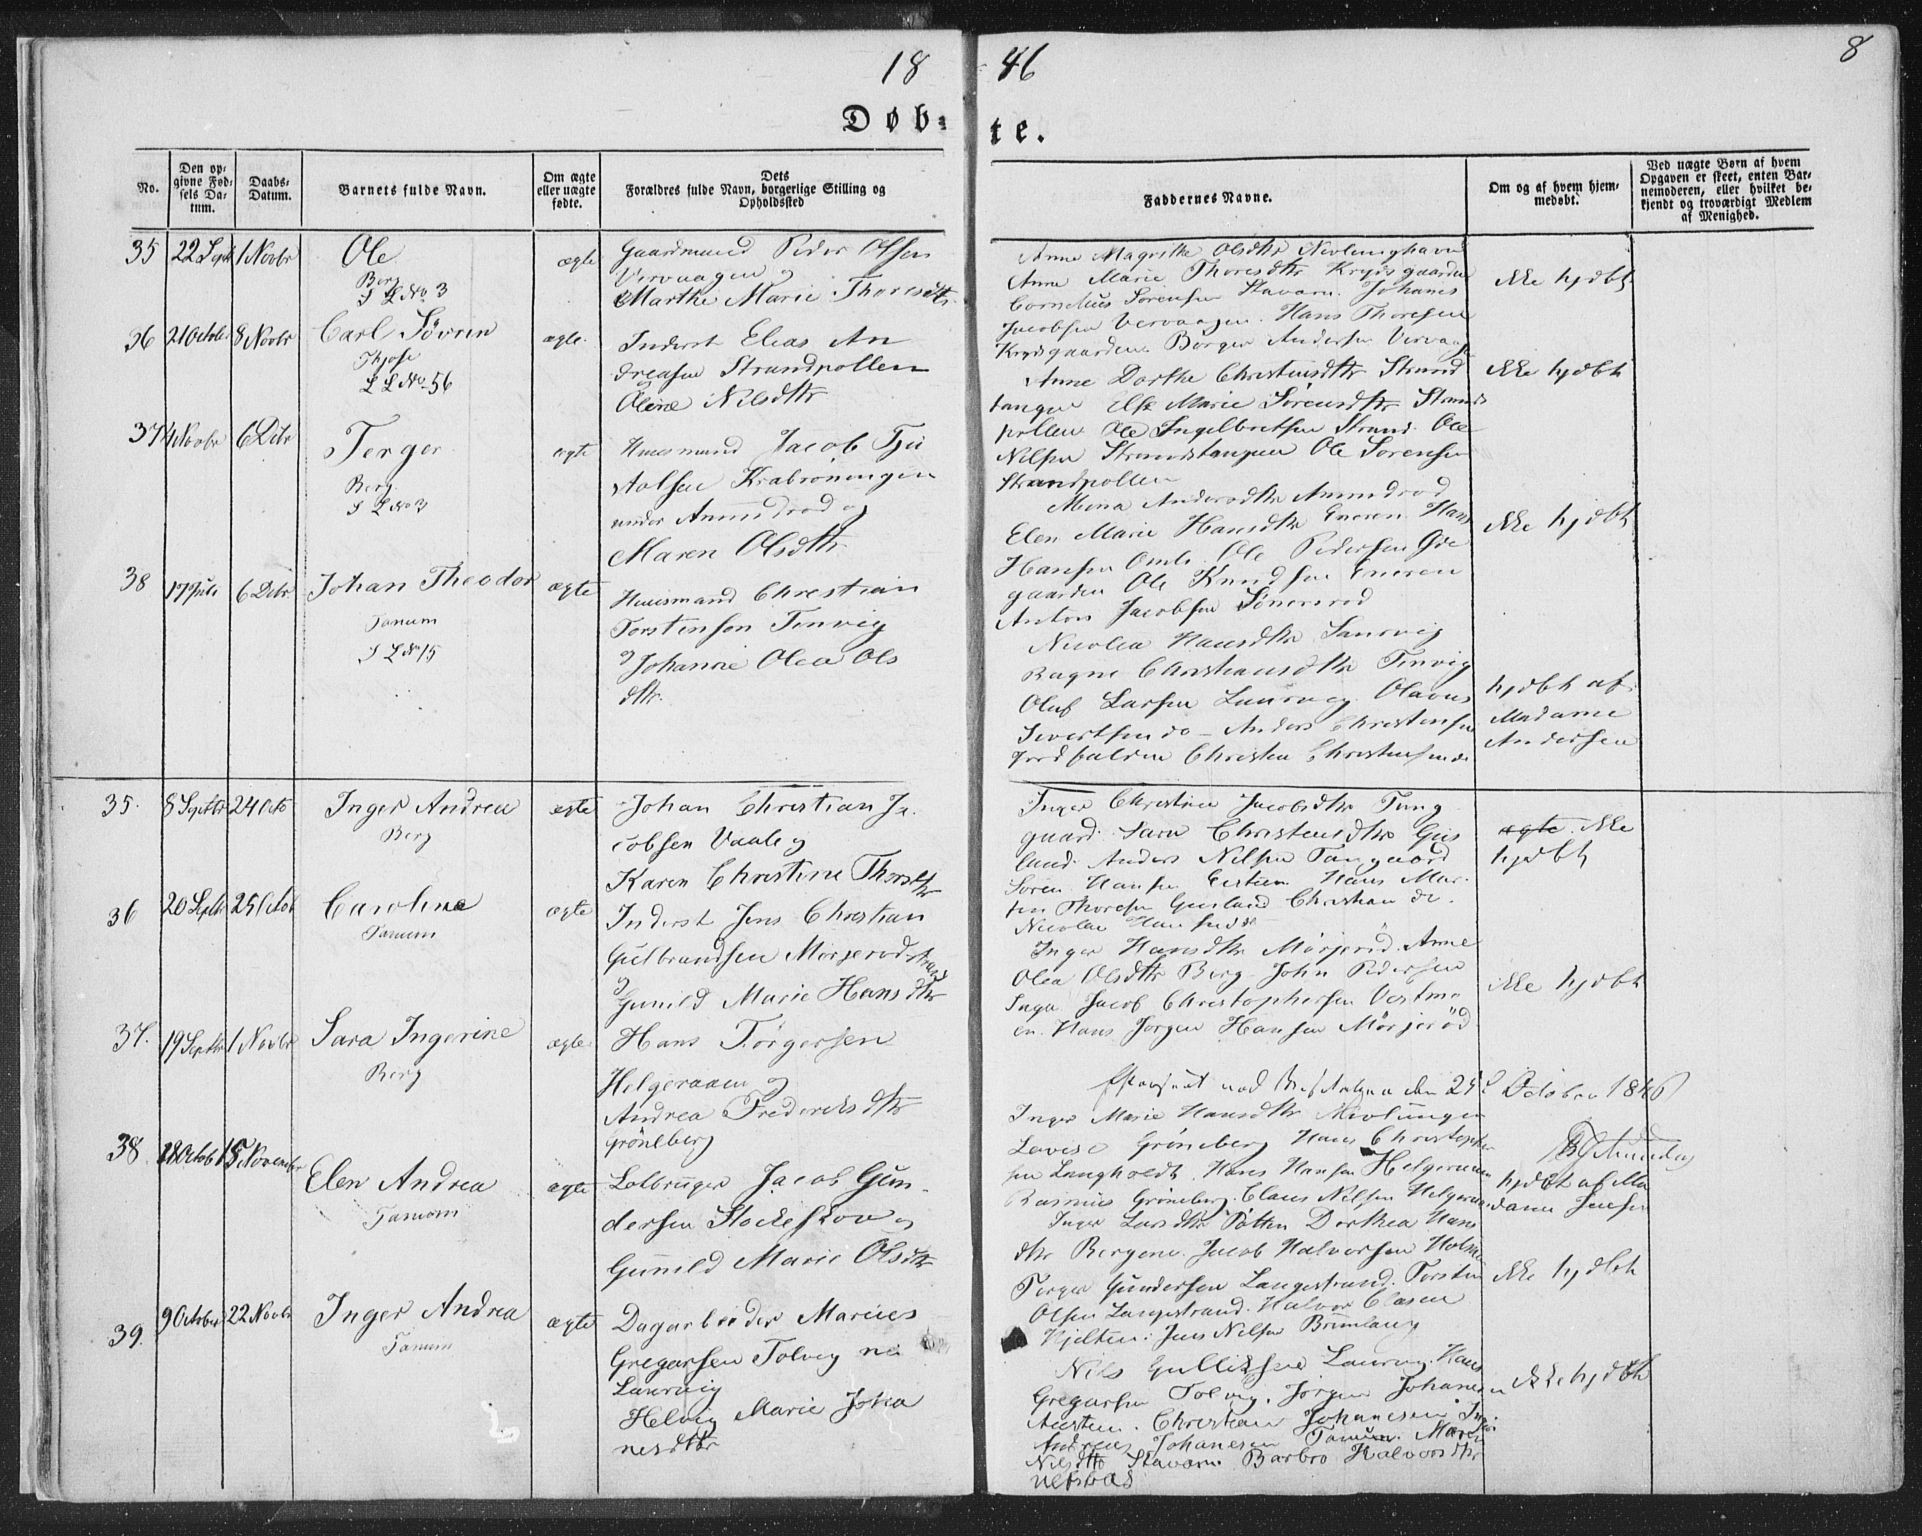 18 46
8
Døb= te.
No.
Den op-
givne Fød-
sels Da-
tum.
Daabs-
Datum.
Barnets fulde Navn.
Om ægte
eller uægte
fødte.
Dets
Forældres fulde Navn, borgerlige Stilling og
Opholdssted
Faddernes Navne.
Om og af hvem hjem-
medøbt.
Ved uægte Børn af hvem
Opgaven er skeet, enten Bar-
nemoderen, eller hvilket be-
kjendt og troværdigt Medlem
af Menighed.
35 22 Septr 1 Novbr Ole
Berg
S L No 3
ægte
Gaardmand Peder Olsen
Vervaagen og
Marthe Marie Thoresdtr
Anne Magrethe Olsdtr Nevlunghavn
Anne Marie Thoresdtr Krydsgaarden
Cornelius Sørensen Stavern Johanes
Jacobsen Vervaagen. Hans Thoresen
Krydsgaarden Børger Andersen Vervaag
ikke hjdbt
36 21 October 8 Novbr Carl Søvrin
Kjose
S L No 56
ægte.
Inderst Elias An
dreasen Strandpollen
Oline Nilsdtr
Anne Dorthe Christensdtr Strand
tangen Else Marie Sørensdtr Strand
pollen Ole Ingelbretsen Strand Ole
Nilsen Strandstangen Ole Sørensen
Strandpollen
ikke hjdbt
37 4 Novbr 6 Debr Terger
Berg.
S L No 3
ægte
Huusmand Jacob Tju
stolsen Krabroningen
under Anundrød og
Maren Olsdtr
Mona Andersdtr Anundrød
Elen Marie Hansdtr Eneren Hans
Hansen Omli Ole Pedersen Øde
gaarden Ole Knudsen Eneren
Anton Jacobsen Sønersrød
ikke hjdbt
38 17 Juli 6 Debr Johan Theodor
Tanum
S L No 15
ægte
Huusmand Christian
Torstensen Tenvig
og Johanne Olea Ols
dtr.
Nicolea Hansdtr Tanvig
Ragne Christiansdtr Tenvig
Oluf Larsen Laurvig Olavus
Sivertsen do - Anders Christensen
Jordfalden Christen Christensen do
hjdbt af
Madame
Andersen
35. 8 Septbr 24 Octo Inger Andrea
Berg
ægte
Johan Christian Ja-
cobsen Vaale og
Karen Christine Thorsdtr
Inger Christine Jacobsdtr Tung
gaard. Sara Christensdtr Gus
land. Anders Nilsen Tanggaard
Søren Hansen Hans Mar-
tin Thoresen Gusland Christian do.
Nicolai Hansen do
ægte. ikke
hjdbt
36 20 Septr 25 Octob Caroline
Tanum
ægte
Inderst Jens Christian
Gulbrandsen Mørjerød strand
og Gunild Marie Hansdtr
Inger Hansdtr Mørjerød. Anne
Olea Olsdtr Berg John Pedersen
Inga Jacob Christophersen Vestme
en. Hans Jørgen Hansen Mørjerød
ikke hjdbt
37. 19 Septbr 1 Novbr Sara Ingerine
Berg
ægte
Hans Törgersen
Helgeraaen og
Andrea Frederiksdtr
Grönlberg
den 25de October 1846
Inger Marie Hansdtr Nevlungen
Lovise Grønberg Hans Christopher
sen Langholdt. Hans Hansen Helgeraaen
Rasmus Grønberg. Claus Nilsen Helgeraa
hjdbt af Ma
dame Jensen
38. 28 Octob 15 November Elen Andrea
Tanum
ægte
Lolbruger Jacob Gun-
dersen Stokeskov og
Gunild Marie Olsdtr
Inger Larsdtr Pøtten Dorthea Hans
dtr Bergene. Jacob Halvorsen Holm
Terger Gundersen Langestrand. Torsten
Olsen Langestrand. Halvor Clasen
Hjelten. Jens Nilsen Brunlang
ikke hjdbt
39. 9 October 22 Novbr Inger Andrea
Tanum
ægte
Dagarbeider Marius
Gregarsen Tolvig
Laurvig
Helvig Marie Joha
nesdtr
Nils Gulliksen Laurvig. Hans
Gregarsen Tolvig. Jørgen Johanesen
Austen. Christian Johanesen
Andreas Johanesen Tanum. Maren
Nilsdtr Stavern Barbro Halvorsdtr
ikke hjdbt